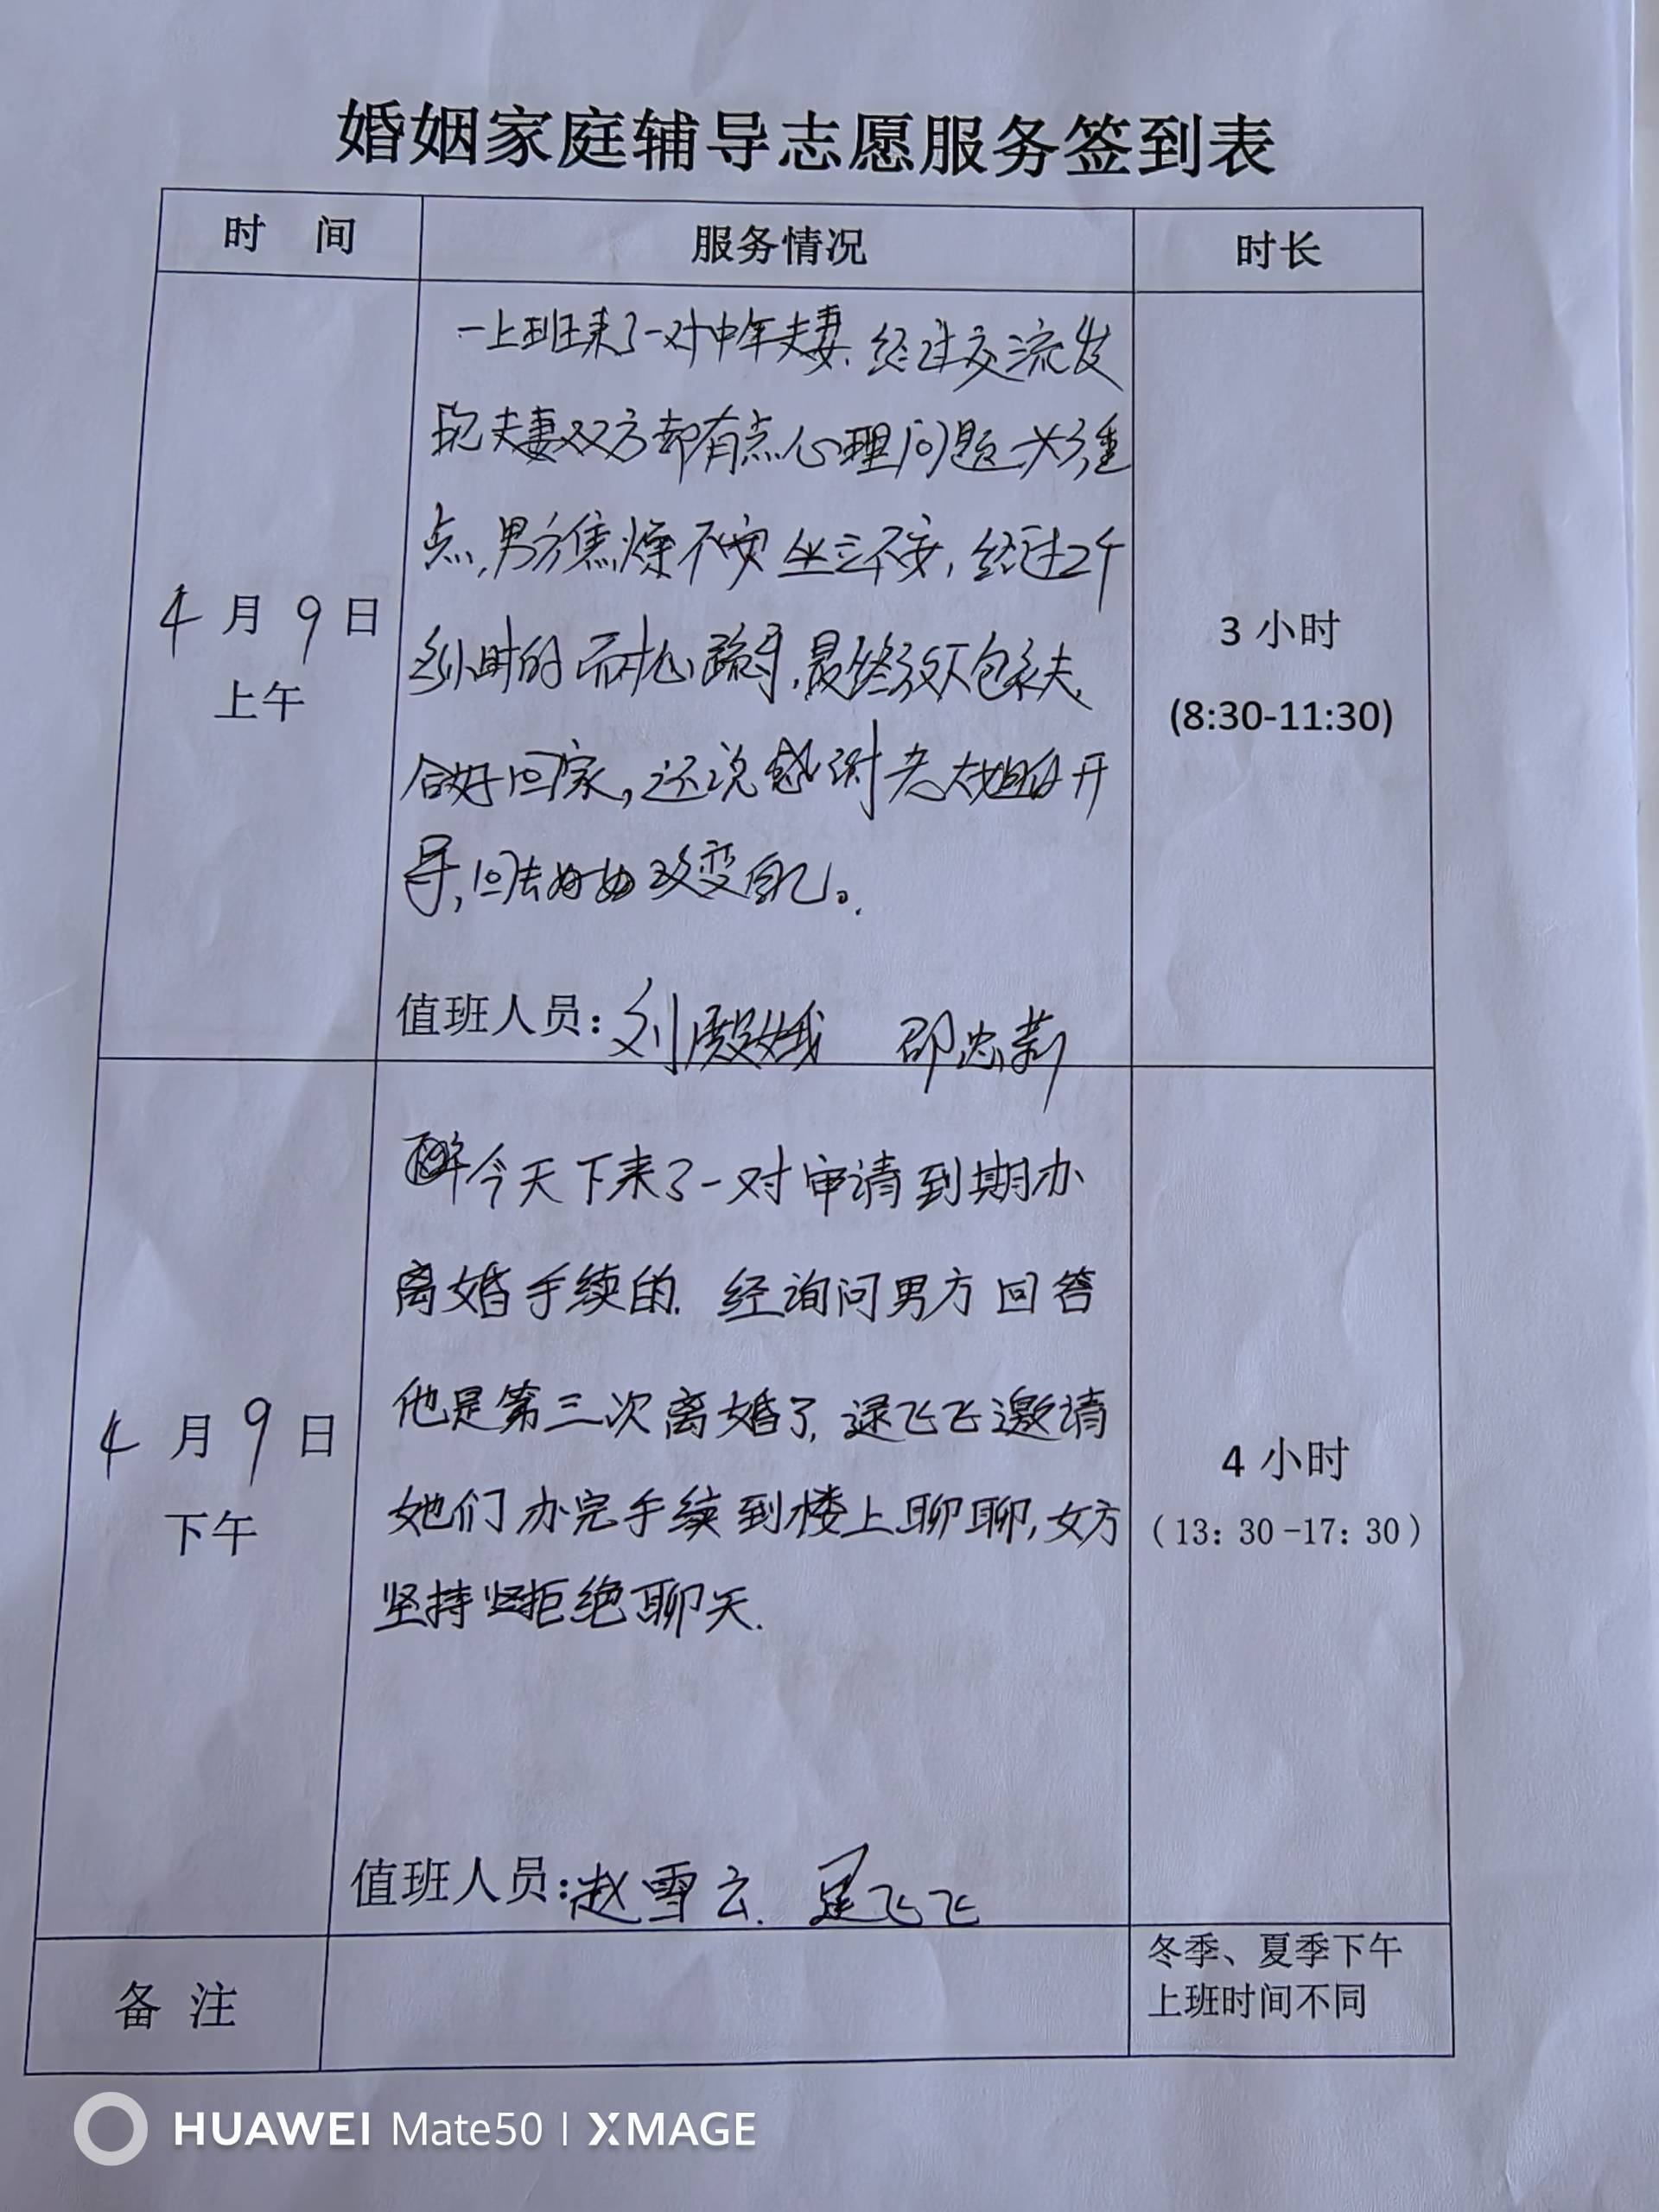 婚姻家庭辅导志愿服务签到表
时 间
服务情况
时长
4月9日
上午
一上班来了一对中年夫妻.经过交流发
现夫妻双方都有点心理问题女方重
点,男方焦燥不安坐立不安,经过2个
多小时的耐心疏导,最终放下包袱夫
合好回家,还说感谢老大姐的开
导,回去好好改变自己。
值班人员:刘殿娥 邵忠莉
3小时
(8:30-11:30)
4月9日
下午
今天下来了一对申请到期办
离婚手续的.经询问男方回答
他是第三次离婚了,逯飞飞邀请
她们办完手续到楼上聊聊,女方
坚持坚拒绝聊天.
值班人员:赵雪云. 逯飞飞
4小时
(13:30-17:30)
备 注
冬季、夏季下午
上班时间不同
HUAWEI Mate50 | XMAGE